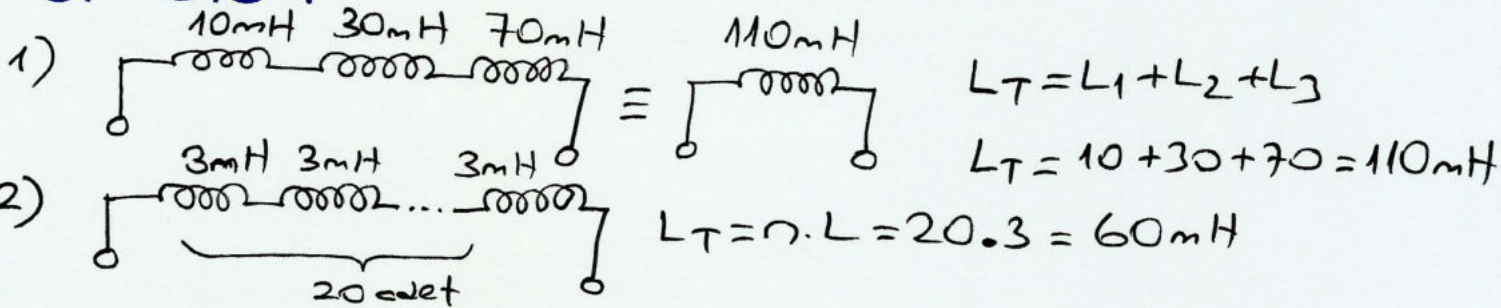 1) 10mH 30mH 70mH ≡ 110mH
L_T = L_1 + L_2 + L_3
L_T = 10 + 30 + 70 = 110mH
2) 3mH 3mH ... 3mH
L_T = n.L = 20.3 = 60mH
20 adet